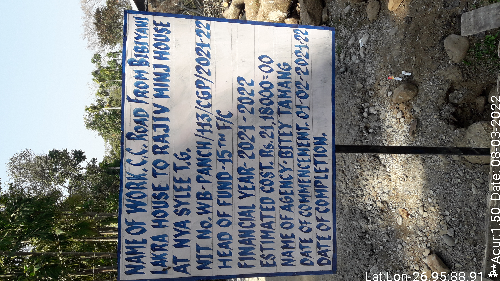 NAME OF WORK C.C. ROAD FROM BIBIYANI
LAKRA HOUSE TO RAJIV MINJ HOUSE
AT NYA SYLEE T.G.
NIT No. WB-PANCH/113/CGP/2021-22
HEAD OF FUND-15TH FC
FINANCIAL YEAR-2021-2022
ESTIMATED COST Rs. 2,49000=00
NAME OF AGENCY BITEY TAMANG
DATE OF COMMENCEMENT-01-02-2021-22
DATE OF COMPLETION.
Lat Lon-26.95:88.91
**Acur:1.50 Date:08-02-2022